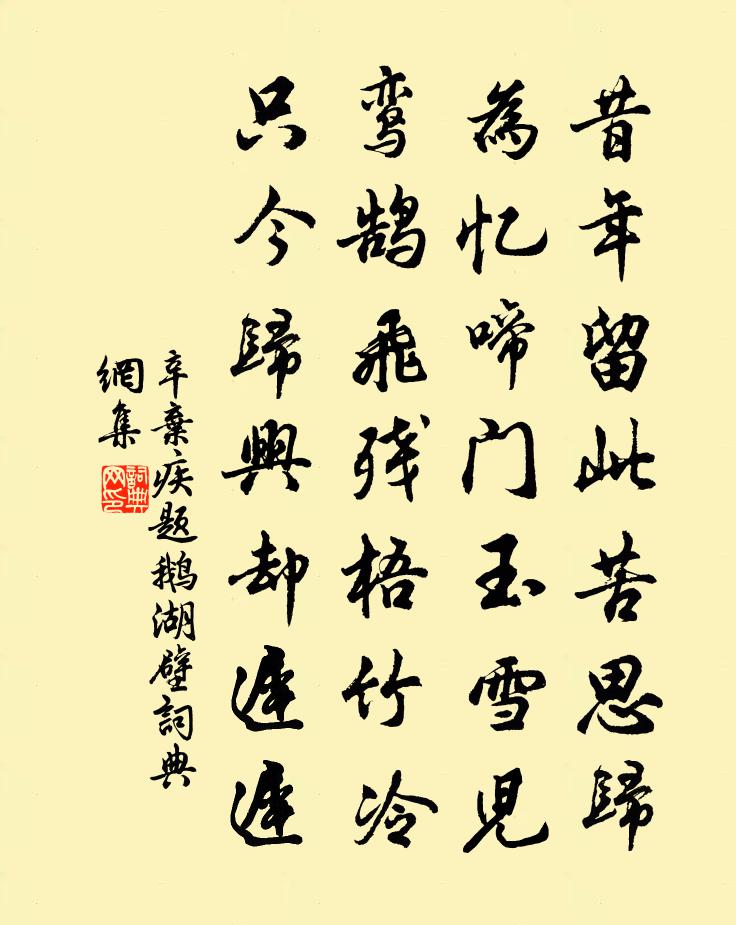 昔年留此苦思歸
為忆啼门玉雪児
鸾鹄飛残梧竹冷
只今歸興却遲遲
辛棄疾题鹅湖壁詞典
網集
詞典
网印